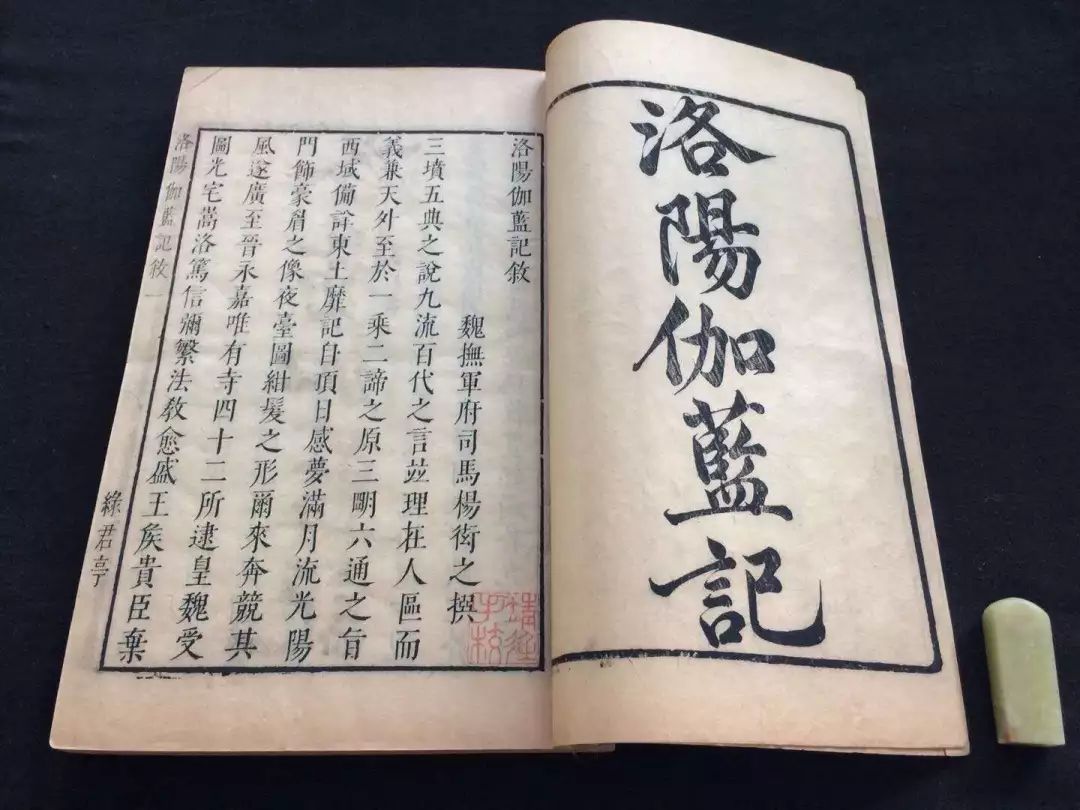 洛陽伽藍記
洛陽伽藍記敘
魏撫軍府司馬楊衒之撰
三墳五典之說九流百代之言竝理在人區而
義兼天外至於一乘二諦之原三眀六通之旨
西域備詳東土靡記自頂日感夢滿月流光陽
門飾豪眉之像夜臺圖紺髮之形爾來奔競其
風遂廣至晉永嘉唯有寺四十二所逮皇魏受
圖光宅嵩洛篤信彌繁法教愈盛王侯貴臣棄
洛陽伽藍記敘 一
綠君亭